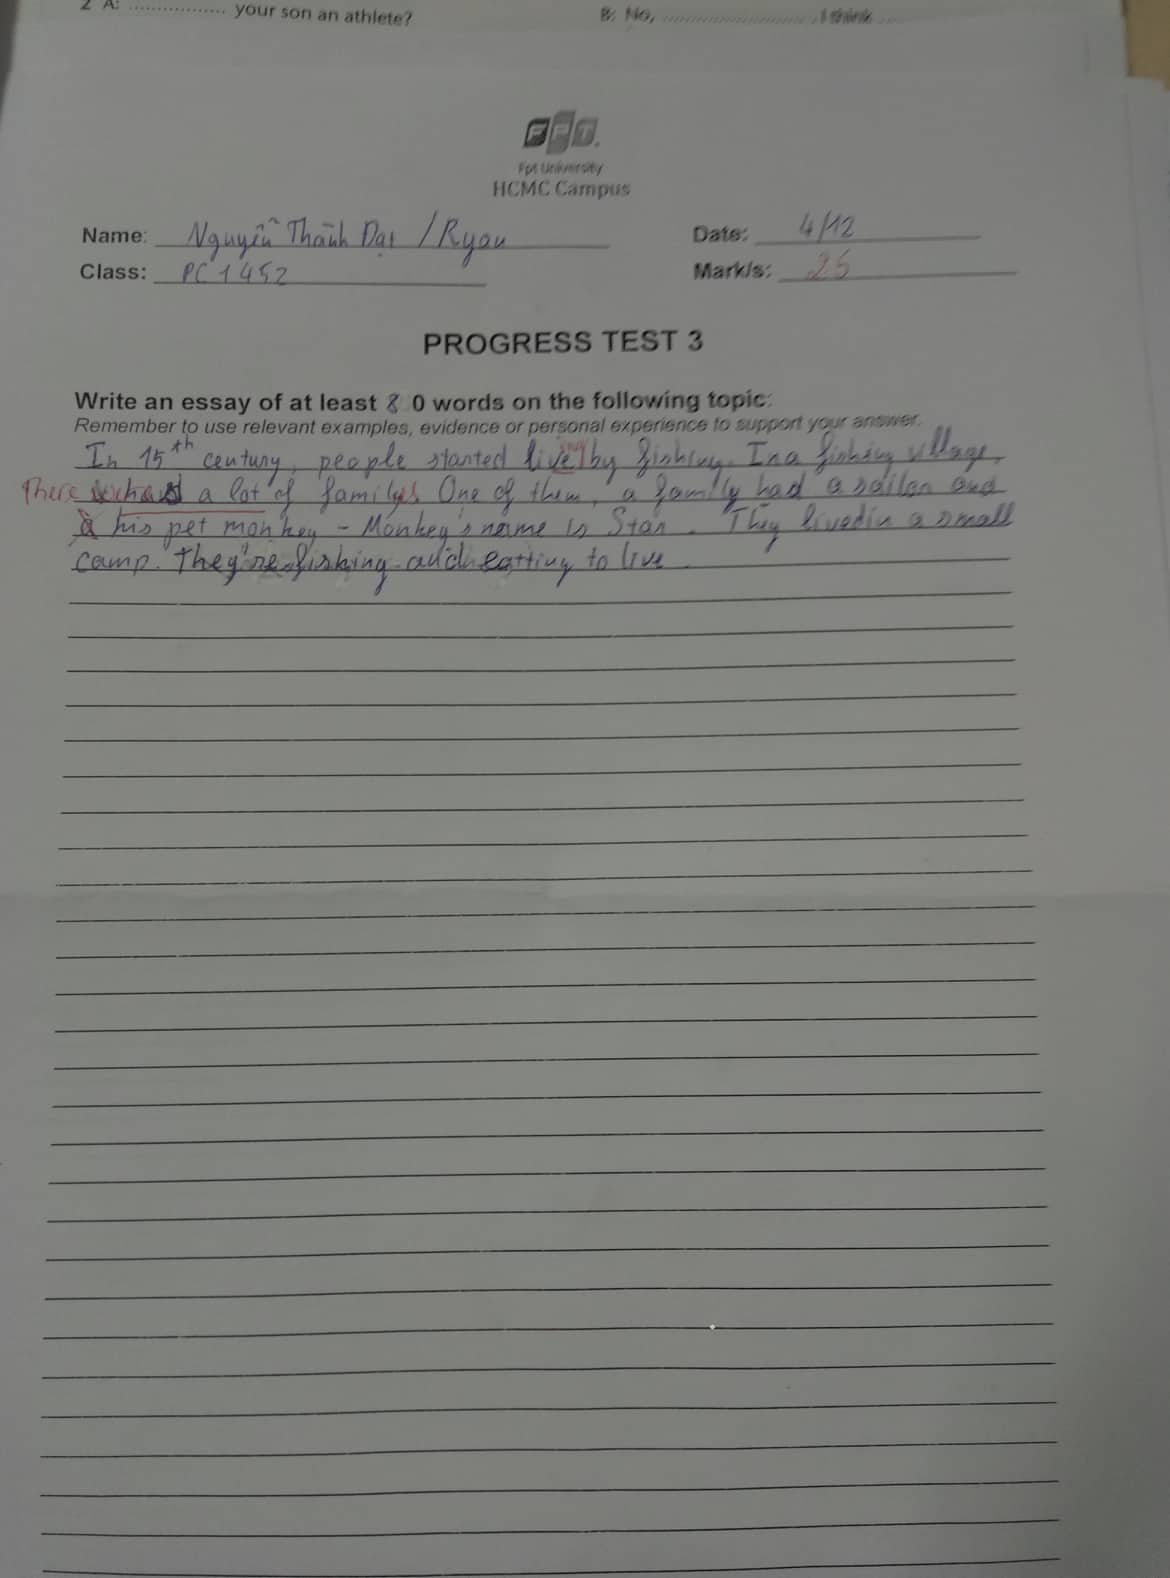 2 A: ................ your son an athlete?
B: No, ........................, I think ...
FPT.
Fpt University
HCMC Campus
Name: Nguyễn Thành Đạt / Ryan
Date: 4/12
Class: PC1452
Mark/s: 25
PROGRESS TEST 3
Write an essay of at least 80 words on the following topic:
Remember to use relevant examples, evidence or personal experience to support your answer.
In 15th century, people started live by fishing. In a fishing village,
There a lot of families. One of them, a family had a sailor and
his pet monkey - Monkey's name is Star. They lived in a small
camp. They're fishing and eatting to live